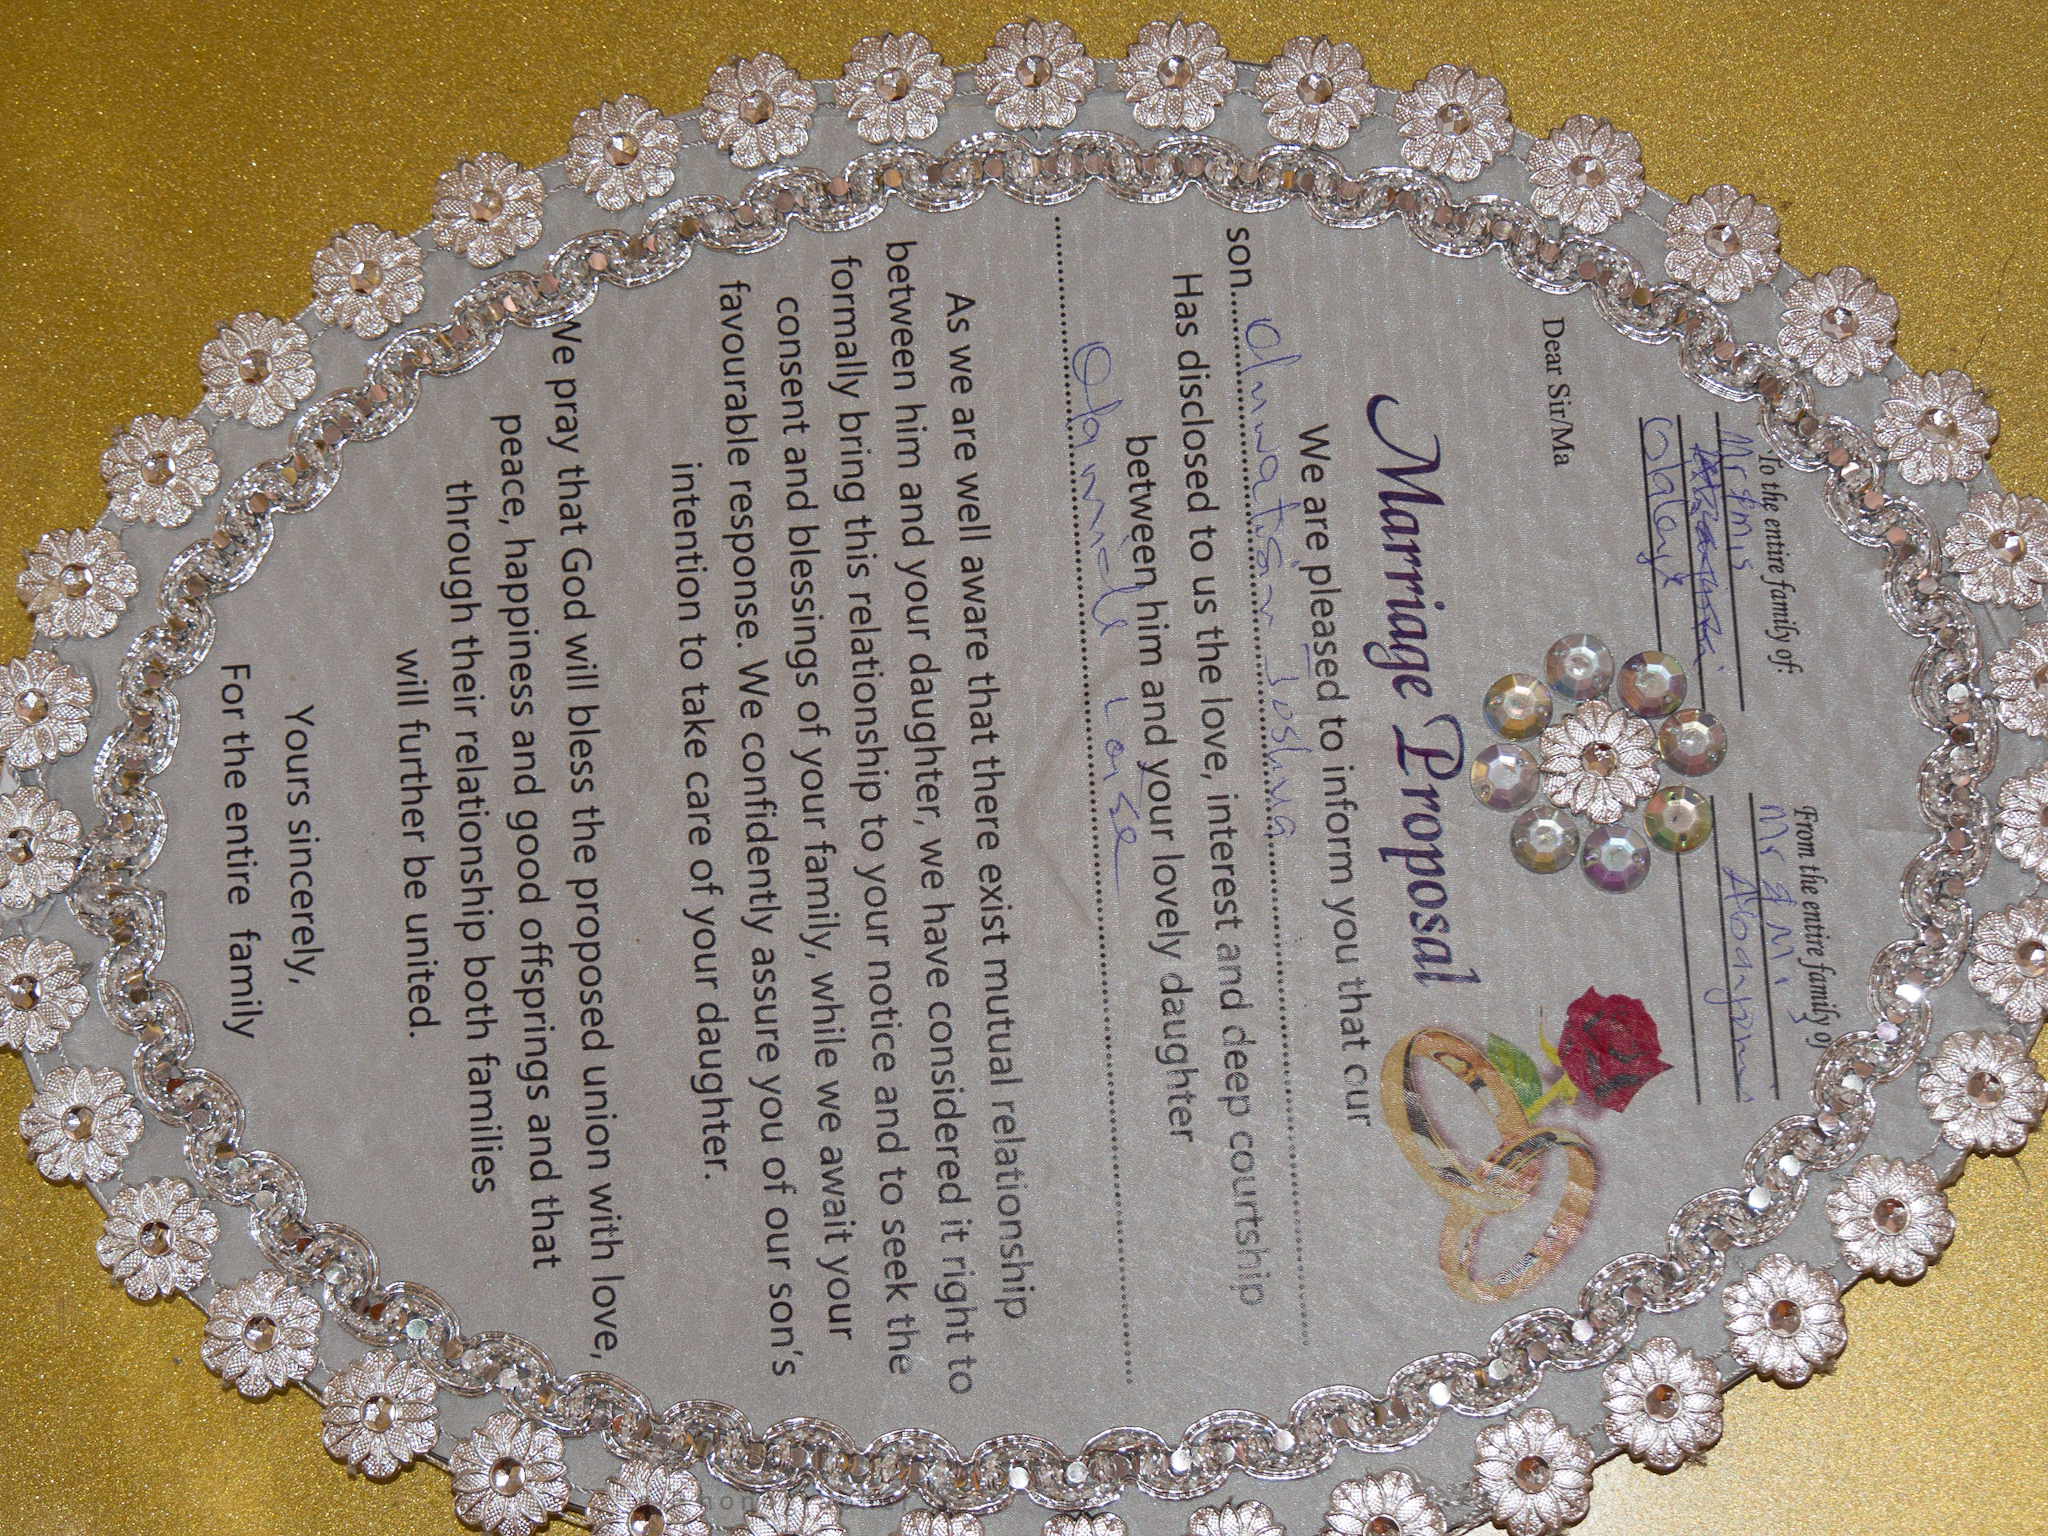 To the entire family of:
Mr & Mrs
Olaleye
From the entire family of
Mr & Mr
Abogyomi
Dear Sir/Ma
Marriage Proposal
We are pleased to inform you that our
son....Oluwatosin Joshua....
Has disclosed to us the love, interest and deep courtship
between him and your lovely daughter
....Olamide Loise....
As we are well aware that there exist mutual relationship
between him and your daughter, we have considered it right to
formally bring this relationship to your notice and to seek the
consent and blessings of your family, while we await your
favourable response. We confidently assure you of our son's
intention to take care of your daughter.
We pray that God will bless the proposed union with love,
peace, happiness and good offsprings and that
through their relationship both families
will further be united.
Yours sincerely,
For the entire family